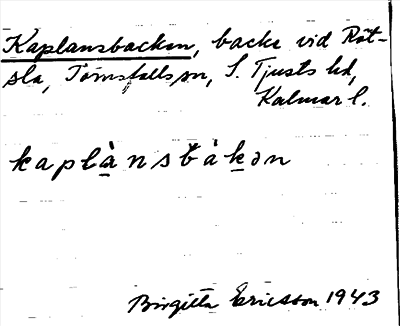 Kaplansbacken, backe vid Röt-
sla, Törnsfalls sn, S. Tjusts hd,
Kalmar l.
kaplà̱nsbàḵən
Birgitta Ericsson 1943